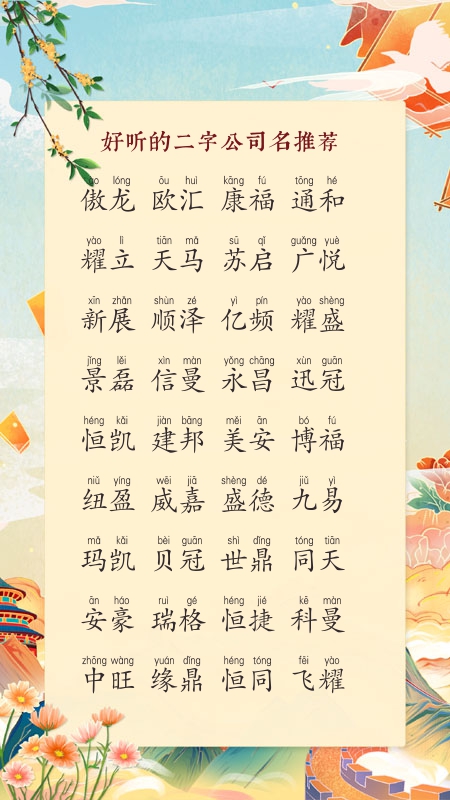 好听的二字公司名推荐
ào lóng ōu huì kāng fú tōng hé
傲龙 欧汇 康福 通和
yào lì tiān mǎ sū qǐ guǎng yuè
耀立 天马 苏启 广悦
xīn zhǎn shùn zé yì pín yào shèng
新展 顺泽 亿频 耀盛
jǐng lěi xìn màn yǒng chāng xùn guān
景磊 信曼 永昌 迅冠
héng kǎi jiàn bāng měi ān bó fú
恒凯 建邦 美安 博福
niǔ yíng wēi jiā shèng dé jiǔ yì
纽盈 威嘉 盛德 九易
mǎ kǎi bèi guān shì dǐng tóng tiān
玛凯 贝冠 世鼎 同天
ān háo ruì gé héng jié kē màn
安豪 瑞格 恒捷 科曼
zhōng wàng yuán dǐng héng tóng fēi yào
中旺 缘鼎 恒同 飞耀